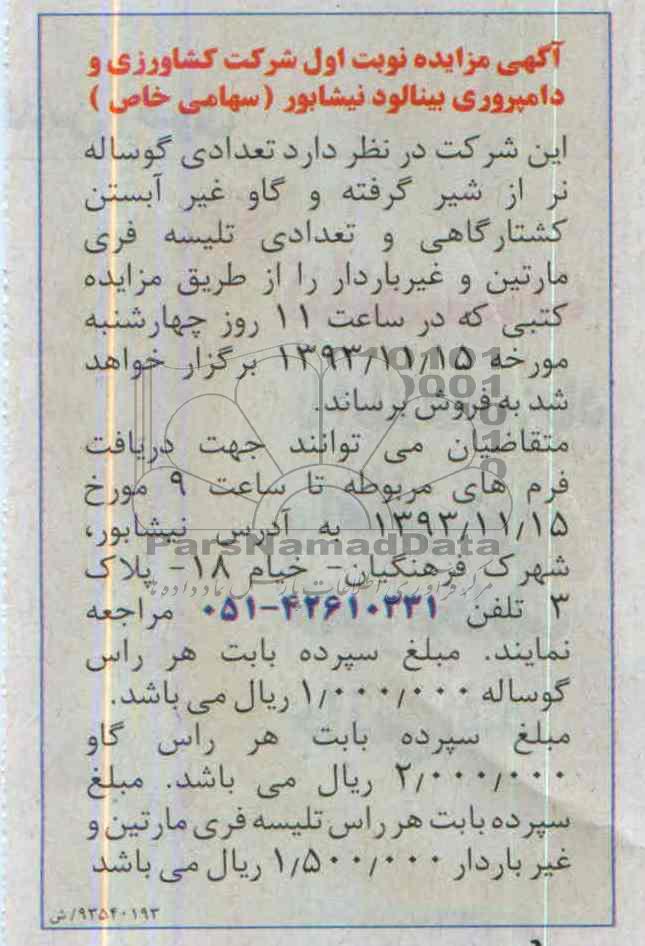 آگهی مزایده نوبت اول شرکت کشاورزی و
دامپروری بینالود نیشابور ( سهامی خاص )
این شرکت در نظر دارد تعدادی گوساله
نر از شیر گرفته و گاو غیر آبستن
کشتارگاهی و تعدادی تلیسه فری
مارتین و غیرباردار را از طریق مزایده
کتبی که در ساعت ۱۱ روز چهارشنبه
مورخه ۱۳۹۳/۱۱/۱۵ برگزار خواهد
شد به فروش برساند.
متقاضیان می توانند جهت دریافت
فرم های مربوطه تا ساعت ۹ مورخ
۱۳۹۳/۱۱/۱۵ به آدرس نیشابور،
شهرک فرهنگیان- خیام ۱۸- پلاک
۳ تلفن ۴۲۶۱۰۳۳۱-۰۵۱ مراجعه
نمایند. مبلغ سپرده بابت هر راس
گوساله ۱/۰۰۰/۰۰۰ ریال می باشد.
مبلغ سپرده بابت هر راس گاو
۲/۰۰۰/۰۰۰ ریال می باشد. مبلغ
سپرده بابت هر راس تلیسه فری مارتین و
غیر باردار ۱/۵۰۰/۰۰۰ ریال می باشد
۹۳۵۴۰۱۹۳/ش
ParsNamadData